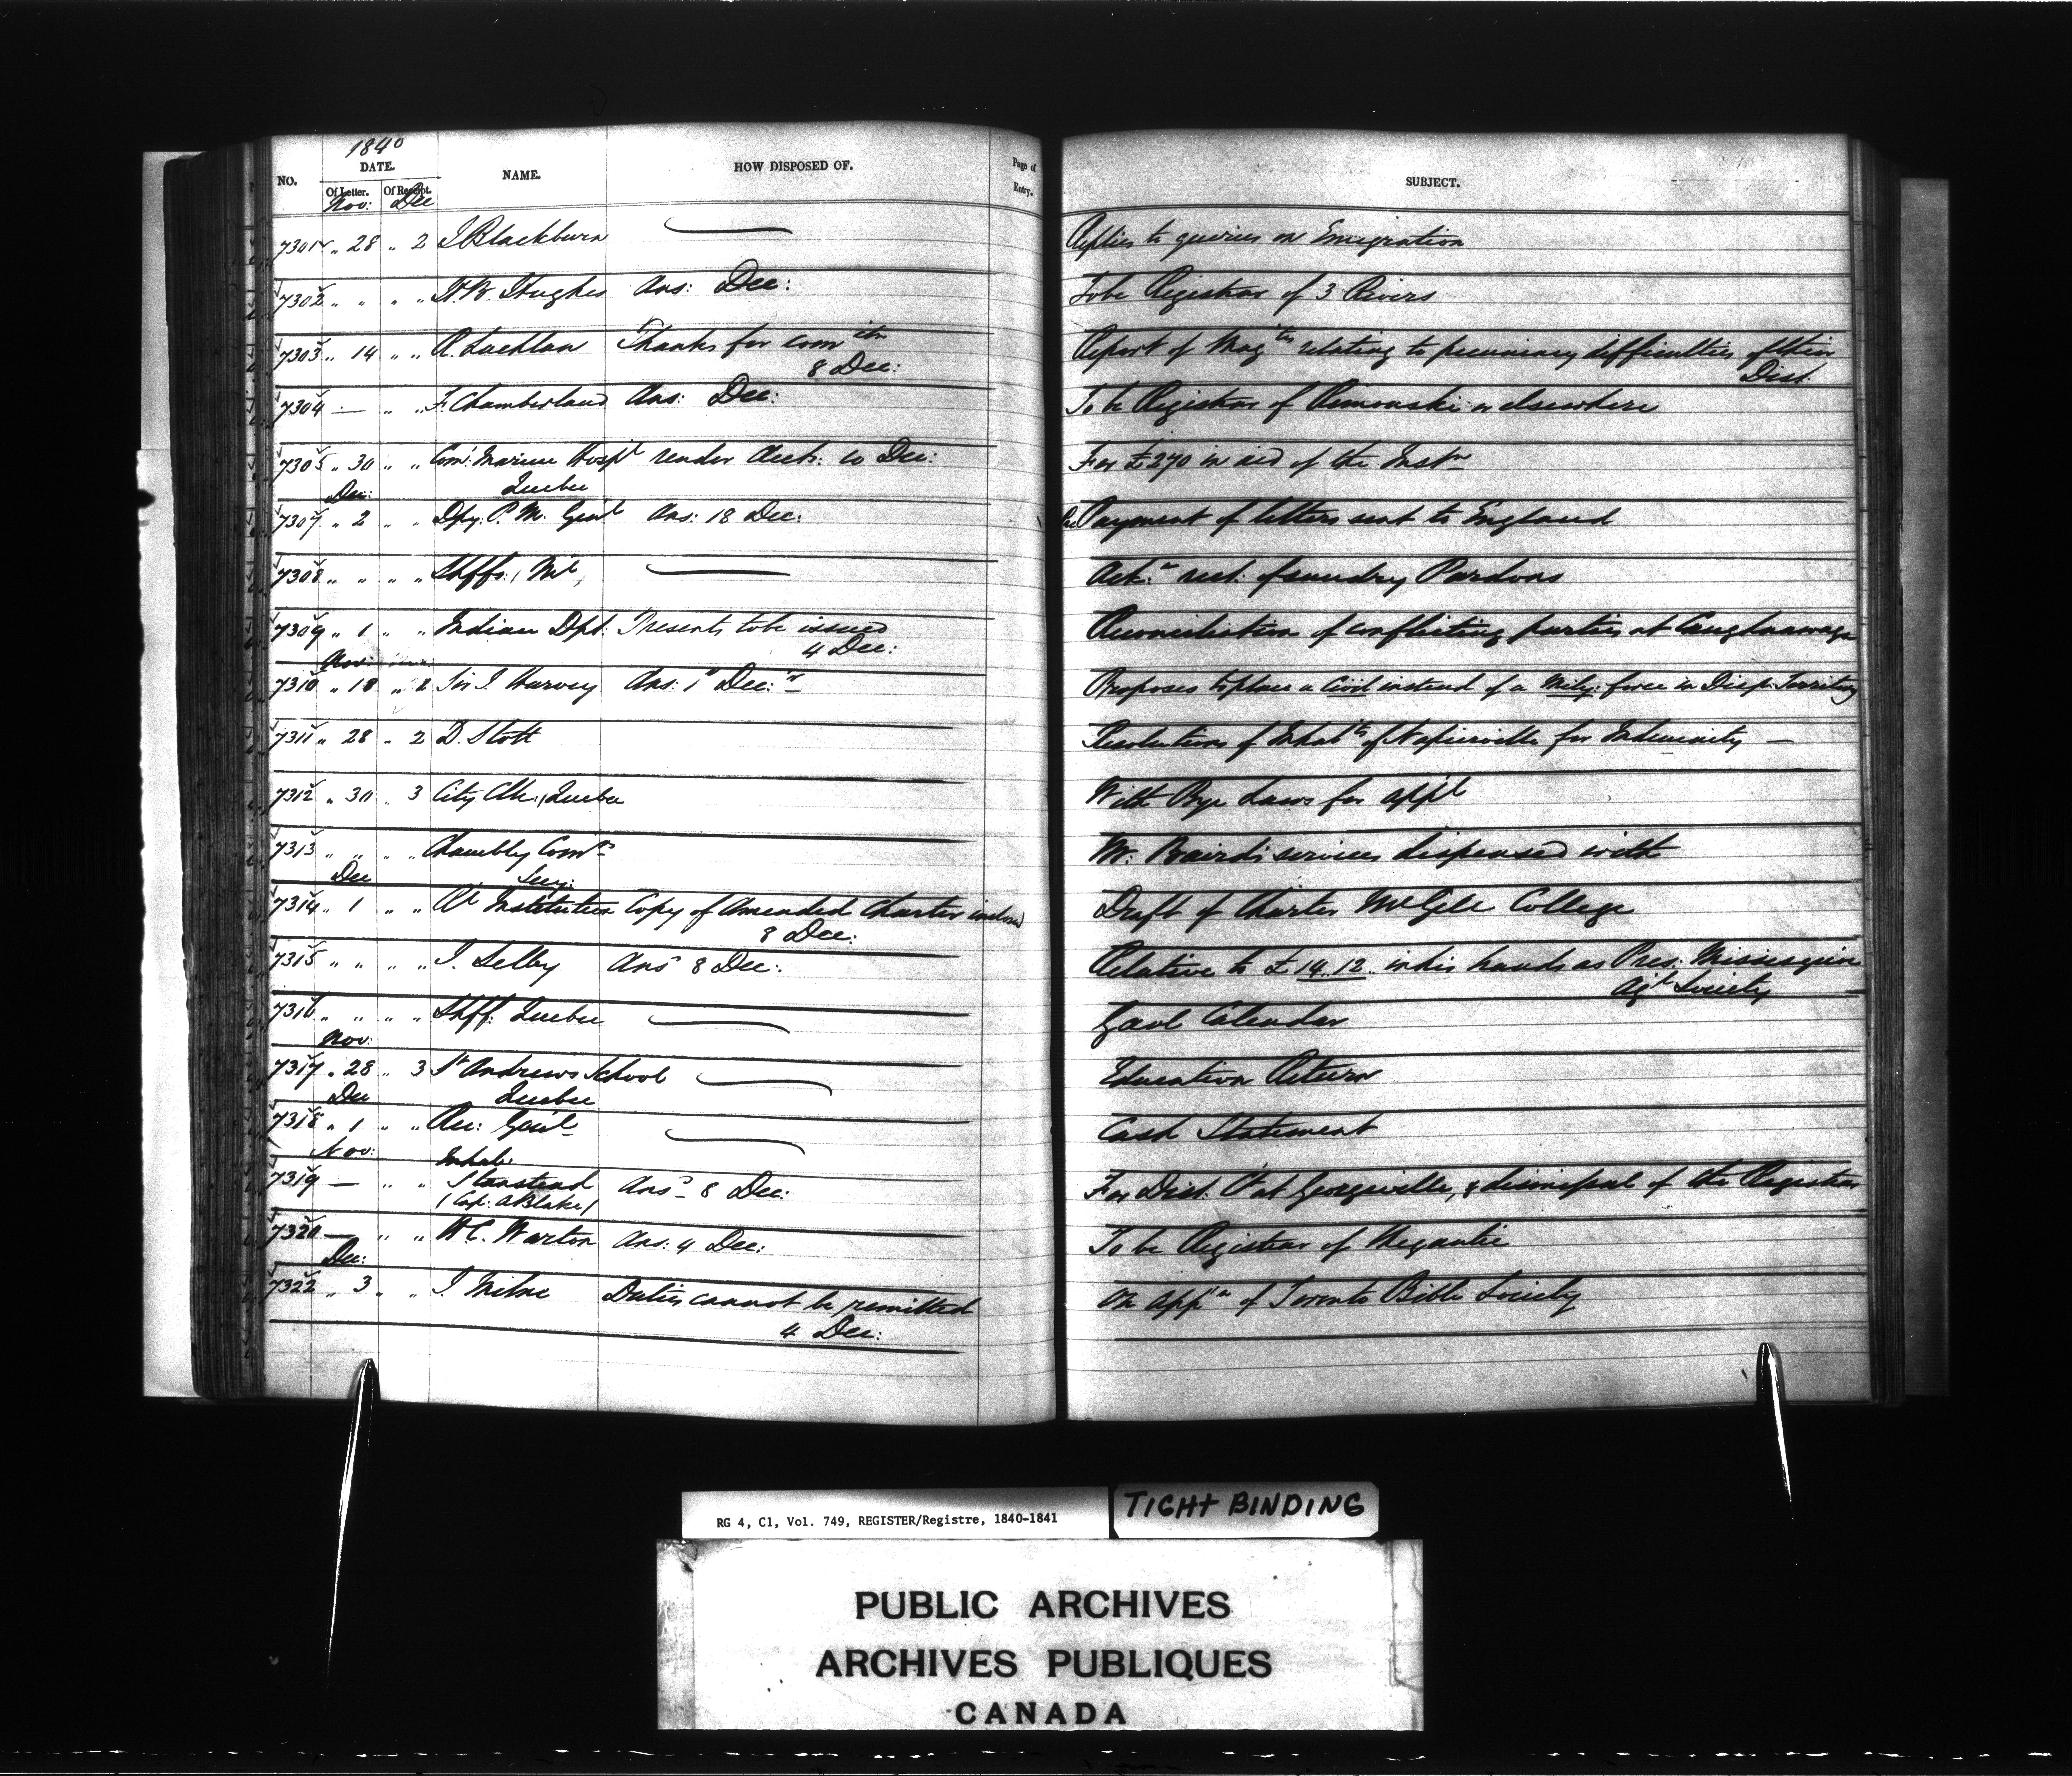 1840
NO. DATE. NAME. HOW DISPOSED OF. Page of Entry. SUBJECT.
Of Letter. Of Receipt.
Nov: Dec
7301 " 28 " 2 J Blackburn Replies to queries on Emigration
7302 " " " " H B. Hughes Ans: Dec: To be Registrar of 3 Rivers
7303 " 14 " " R. Lachlan Thanks for comn Report of Mag tes relating to pecuniary difficulties of their
8 Dec: Dist.
7304 — " " F. Chamberland Ans: Dec: To be Registrar of Rimouski or elsewhere
7305 " 30 " " Com: Marine Hospl render Acct: 10 Dec: For £270 in aid of the Instn
Dec: Quebec
7307 " 2 " " Dpy. P. M. Genl Ans: 18 Dec: Payment of letters sent to England
7308 " " " " Shffs: Ml, Ack: rect: of sundry Pardons
7309 " 1 " " Indian Dpt: Presents to be issued Reconciliation of conflicting parties at Caughnawaga
Nov: 4 Dec:
7310 " 18 " 2 Sir J. Harvey Ans: 1st Dec:r Proposes to place a Civil instead of a Mily: force in Disp: Territory
7311 " 28 " 2 D. Stott Resolutions of Inhabts of Napierville for Indemnity —
7312 " 30 " 3 City Clk:, Quebec With Bye Laws for appl
7313 " " " " Chambly Comrs Mr. Baird's services dispensed with
Dec Secy:
7314 " 1 " " Rl Institution Copy of Amended Charter inclosed Draft of Charter McGill College
8 Dec:
7315 " " " " J. Selby Ans 8 Dec: Relative to £14.12. in his hands as Pres: Missisquoi
Agl Society
7316 " " " " Shff. Quebec Gaol Calendar
Nov:
7317 " 28 " 3 St Andrews School Education Return
Dec Quebec
7318 " 1 " " Rec: Genl Cash Statement
Nov: Inhab:
7319 — " " Stanstead Ans 8 Dec: For Dist. Ct at Georgeville, & dismissal of the Registrar
(Cap. A Blake)
7320 — " " W C. Warton Ans: 4 Dec: To be Registrar of Megantic
Dec:
7322 " 3 " " J. Milne Duties cannot be remitted On appn of Toronto Bible Society
4 Dec:
RG 4, C1, Vol. 749, REGISTER/Registre, 1840-1841
TIGHT BINDING
PUBLIC ARCHIVES
ARCHIVES PUBLIQUES
CANADA